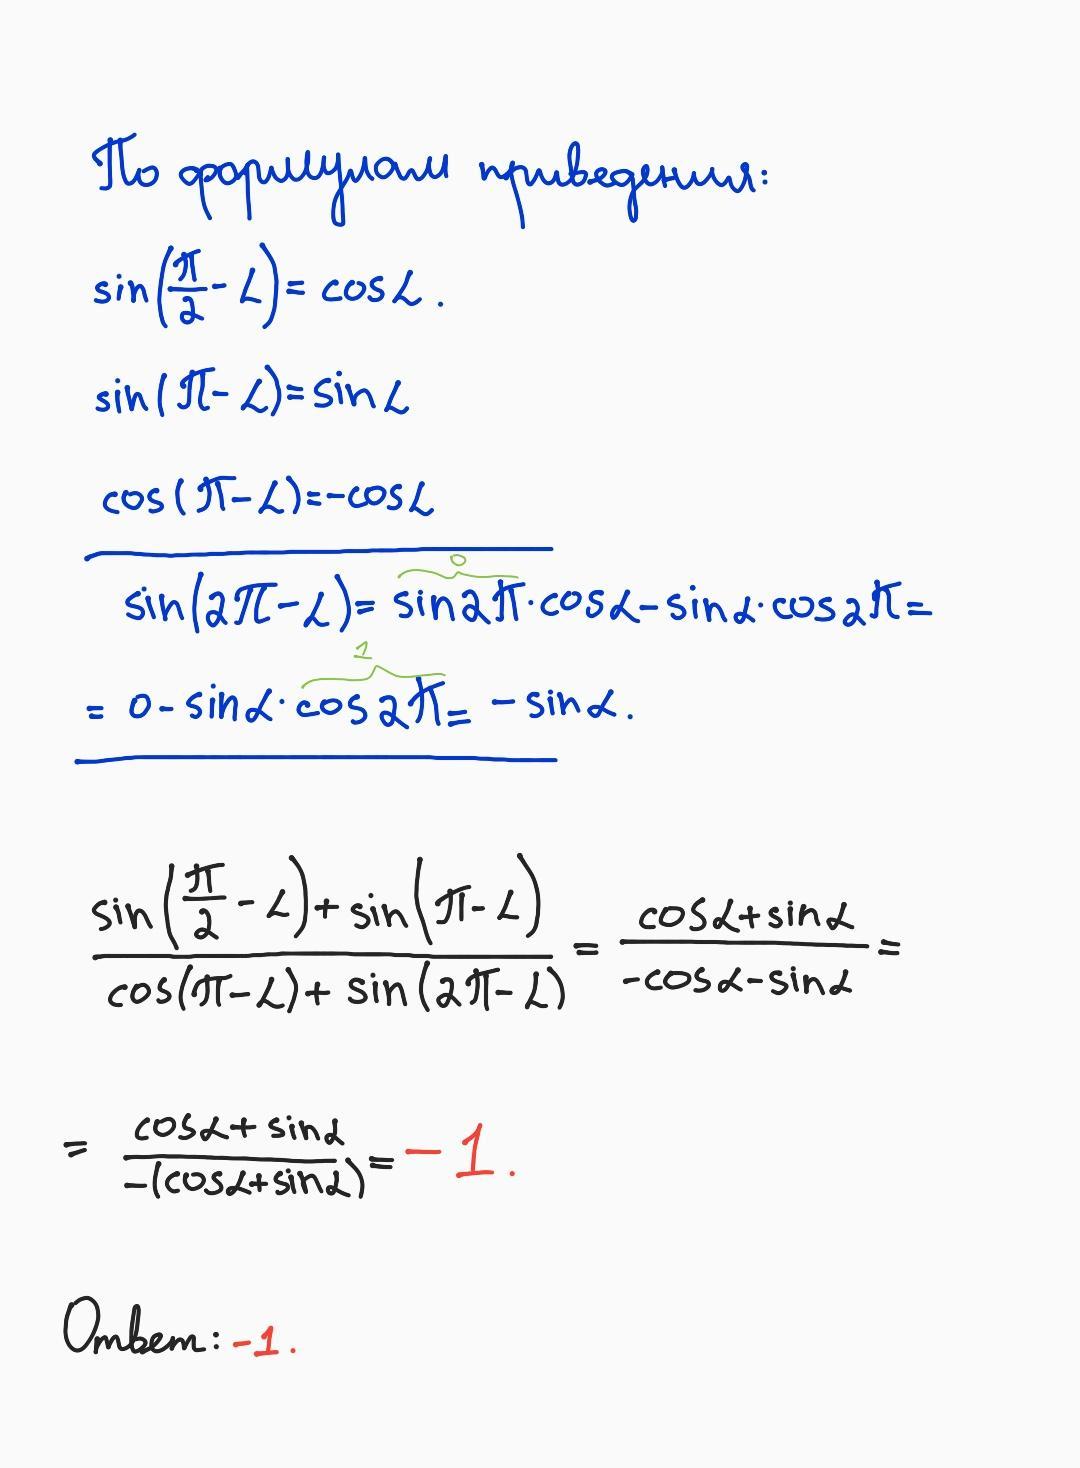 По формулам приведения:
sin(π/2 - α) = cosα.
sin(π - α) = sinα
cos(π - α) = -cosα
0
sin(2π - α) = sin2π·cosα - sinα·cos2π =
1
= 0 - sinα·cos2π = -sinα.
(sin(π/2 - α) + sin(π - α))/(cos(π - α) + sin(2π - α)) = (cosα + sinα)/(-cosα - sinα) =
= (cosα + sinα)/(-(cosα + sinα)) = -1.
Ответ: -1.